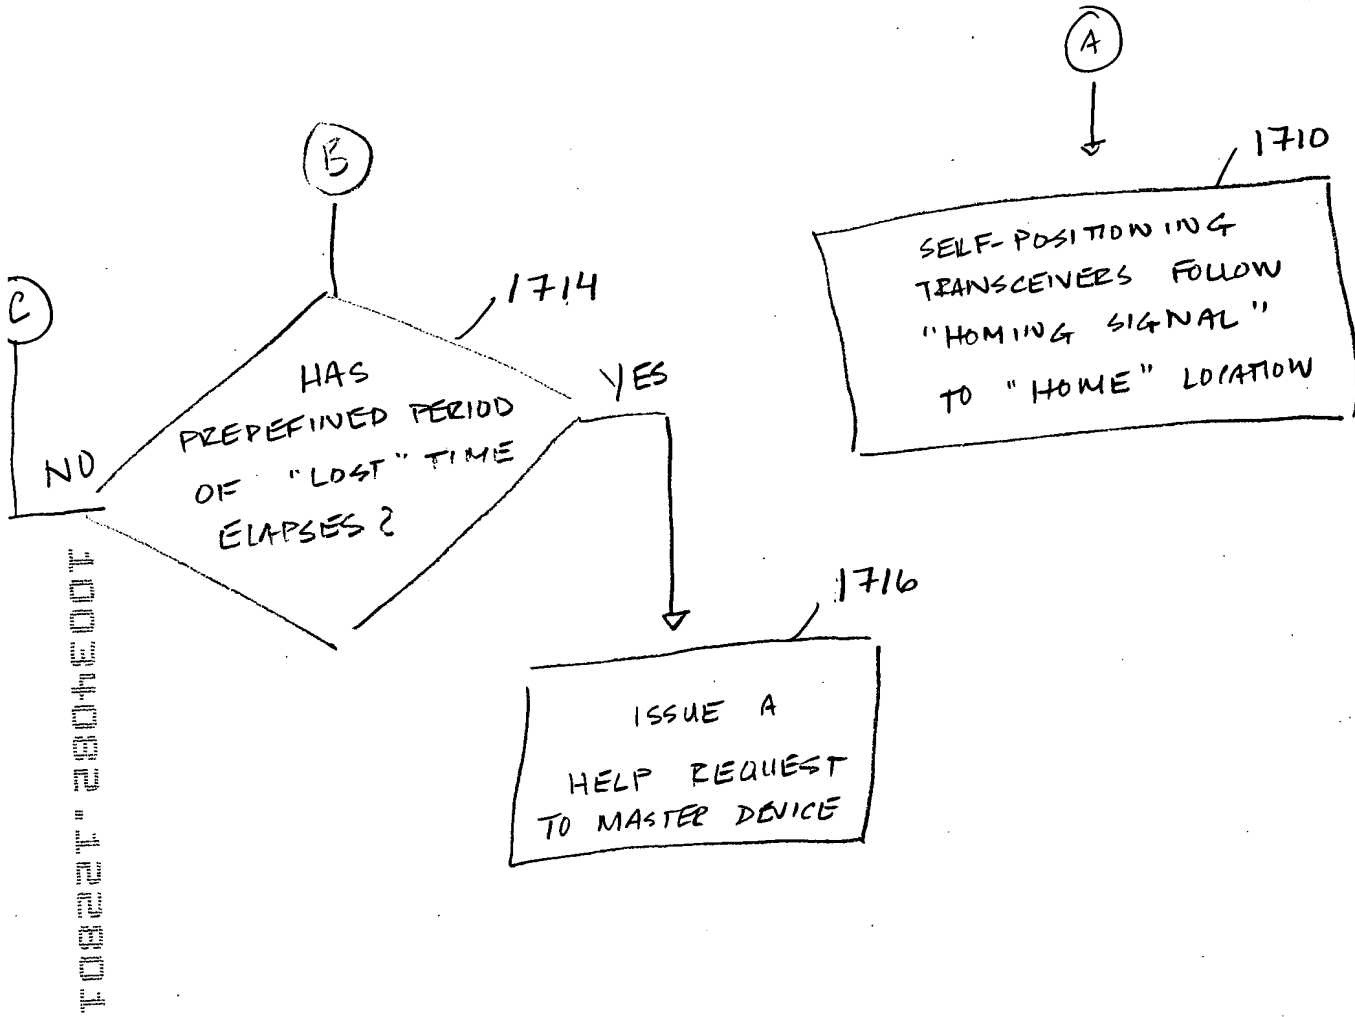 A
1710
SELF-POSITIONING
TRANSCEIVERS FOLLOW
"HOMING SIGNAL"
TO "HOME" LOCATION
B
1714
C
HAS
PREDEFINED PERIOD
OF "LOST" TIME
ELAPSES?
YES
NO
1716
ISSUE A
HELP REQUEST
TO MASTER DEVICE
10034082.122801